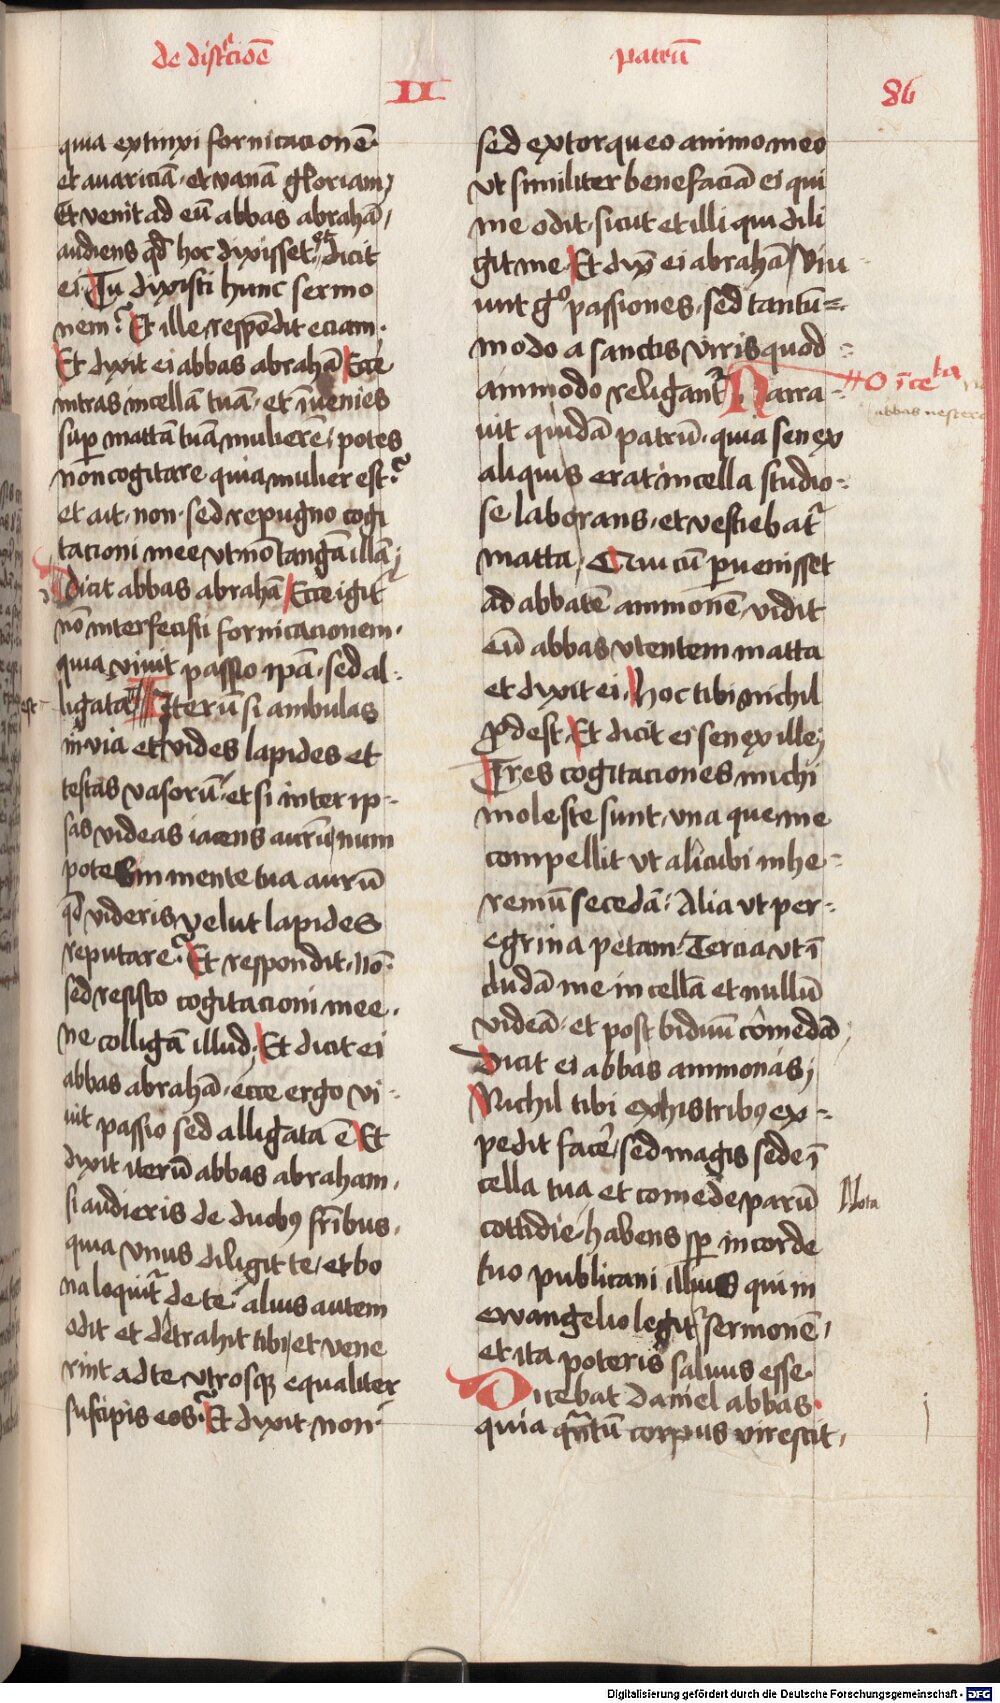 de discᵉcioē
patrū
II
86
quia extinxi fornicacionē·
et auariciā· et vanā gloriam/
Et venit ad eū abbas abrahā/
audiens qd hoc dixisset· dicit
ei Tu dixisti hunc sermo
nem? Et ille respōdit eciam·
Et dixit ei abbas abrahā Ecce
intras in cellā tuā· et īuenies
sup mattā tuā muliere/ potes
non cogitare quia mulier est?
et ait· non· sed repugno cogi
tacioni mee vt nō tangā illā/
dicit abbas abrahā Ecce igit᷑
nō interfecisti fornicacionem·
quia viuit passio ipā· sed al-
ligata est Iterū si ambulas
in via et vides lapides et
testas vasorū· et si inter ip-
sas videas iacens aurū/ num
potes in mente tua aurū
qd videris velut lapides
reputare? Et respondit· Nō·
sed resisto cogitacioni mee·
ne colligā illud· Et dicit ei
abbas abrahā· ecce ergo vi-
uit passio sed alligata ē Et
dixit iterū abbas abraham·
si audieris de duobꝰ fribus·
quia vnus diligit te/ et bo
na loquit᷑ de te· alius autem
odit et detrahit tibi/ et vene
rint ad te vtrosqꝫ equaliter
suscipis eos? Et dixit· non·
sed extorqueo animo meo
vt similiter benefaciā ei qui
me odit· sicut et illi qui dili
git me Et dix̄ ei abrahā/ Viu
unt gͦ passiones· sed tantū=
modo a sanctis viris quod-
ammodo religant᷑ Narra-
uit quidā patrū· quia senex
aliquis erat in cella studio-
se laborans· et vestiebat᷑
matta/ Qui cū puenisset
ad abbatē ammonē· vidit
eū abbas vtentem matta
et dixit ei· hoc tibi nichil
ꝓdest· Et dicit ei senex ille/
Tres cogitaciones michi
moleste sunt· vna que me
compellit vt alicubi in he-
remū secedā· Alia vt per-
egrina petam· Tercia vt ī
cludā me in cella et nullū
videā· et post biduū cōmedā
Dicit ei abbas ammonas/
Nichil tibi ex his tribꝰ ex-
pedit face᷑· sed magis sede ī
cella tua et comede parū
cottidie· habens sp in corde
tuo publicani illius qui in
ewangelio legit᷑ sermonē/
et ita poteris saluus esse·
Dicebat daniel abbas·
quia qntū corpus virescit·
Nota
Digitalisierung gefördert durch die Deutsche Forschungsgemeinschaft - DFG